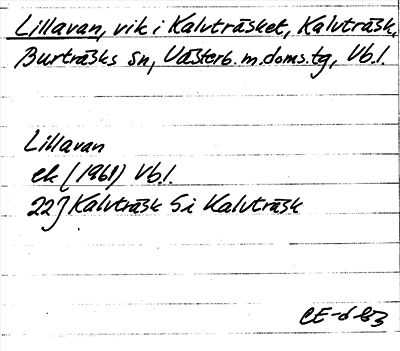 Lillavan, vik i Kalvträsket, Kalvträsk,
Burträsks sn, Västerb. m. doms. tg, Vb.l.
Lillavan
ek (1961) Vb.l.
22J Kalvträsk 5i Kalvträsk